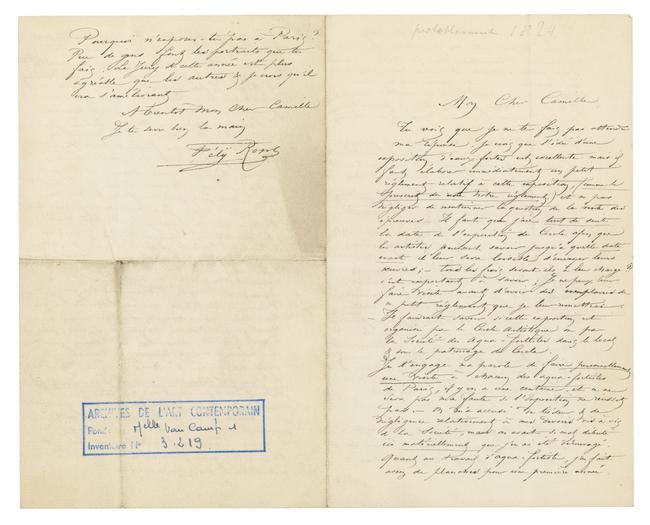 probablement 187
Mon Cher Camille
Tu vois que je ne te fais pas attendre
ma réponse. Je crois que l'idée d'une
exposition d'eaux fortes est excellente mais il
faut élaborer immédiatement un petit
règlement relatif à cette exposition (comme le
de notre règlement) et ne pas
négliger de mentionner la question de la vente des
épreuves. Il faut que j'aie tout de suite
la date de l'exposition du Cercle afin que
les artistes puissent savoir jusqu'à quelle date
exact il leur sera loisible d'envoyer leurs
œuvres; — tous les frais seront ils à leur charge?
c'est important à savoir; Je ne peux leur
faire visite avant d'avoir des exemplaires de
ce petit règlement que je leur remettrai.
Il faudrait savoir si cette exposition est
organisée par le Cercle Artistique ou par
la Société des Aqua-fortistes dans le local
& sous le patronage du Cercle.
Je t'engage ma parole de faire personnellement
une visite à chacun des aqua-fortistes
de Paris, il y en a une centaine, et ce ne
sera pas ma faute si l'exposition ne réussit
pas. — On m'a accusé de tiédeur & de
négligence relativement à mes devoirs vis à vis
de la Société, mais on avait si mal débuté
matériellement que j'en ai été découragé.
Quant au travail d'aqua-fortiste, j'ai fait
assez de planches pour une première année.
Pourquoi n'exposes-tu pas à Paris?
Peu de gens font les portraits que tu
fais. Le Jury de cette année est plus
agréable que les autres & je crois qu'il
ira s'améliorant.
A bientôt Mon Cher Camille
Je te serre bien la main
Fély Rops
ARCHIVES DE L'ART CONTEMPORAIN
Fonds Melle Van Camp
Inventaire N° 3.219